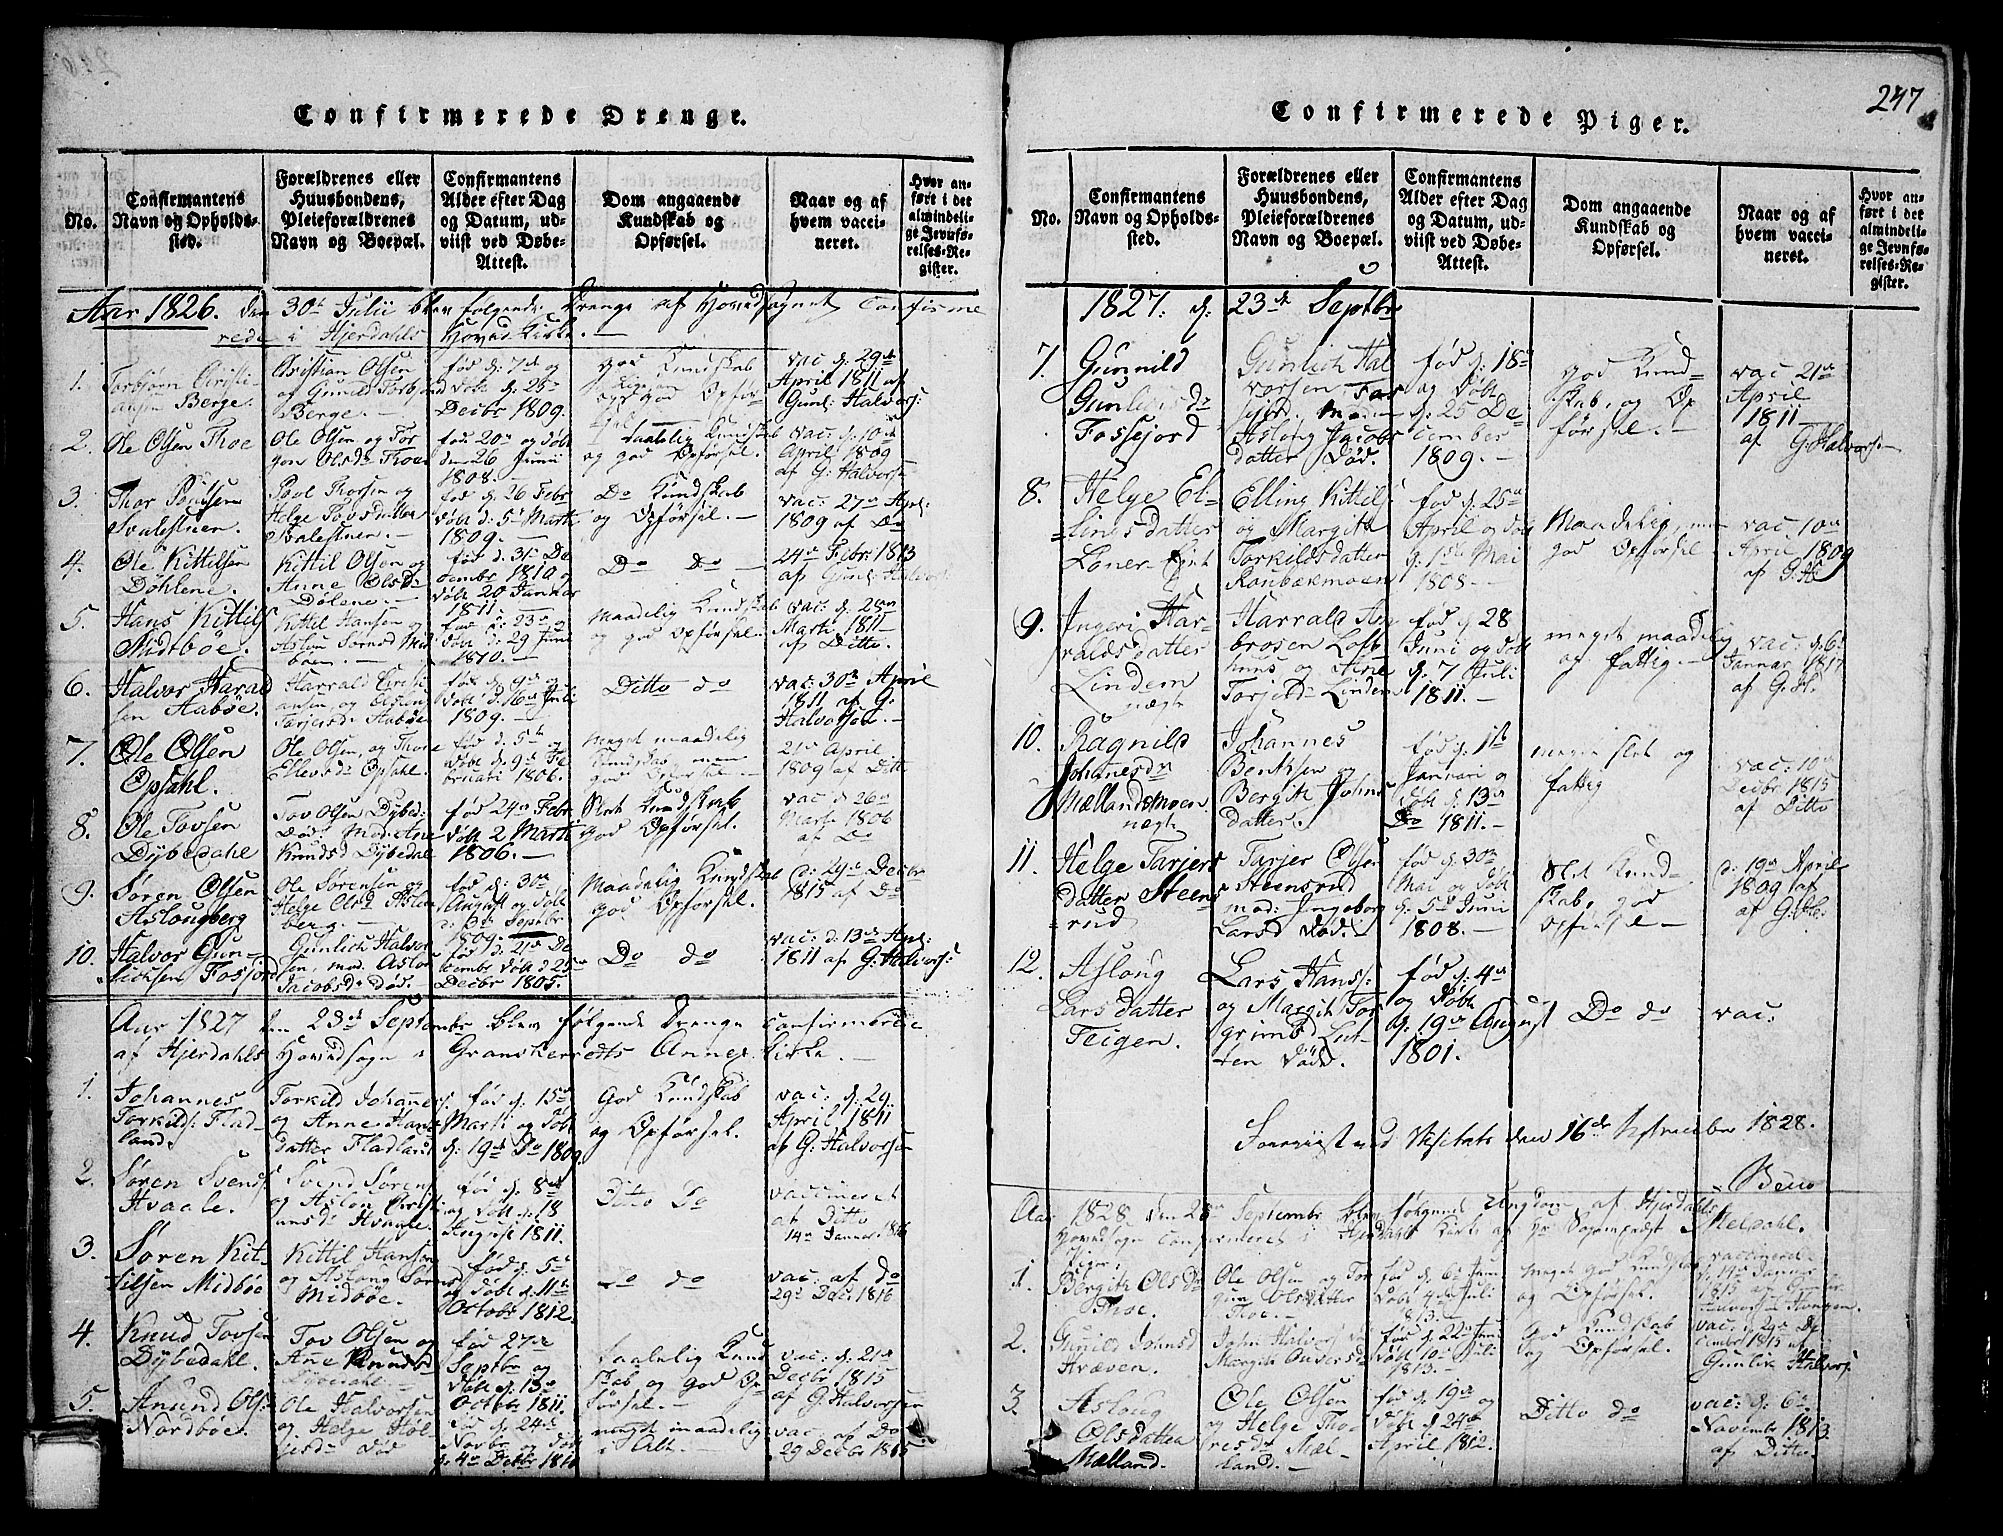 Confirmerede Drenge.
No.
Confirmantens
Navn og Opholds-
sted.
Forældrenes eller
Huusbondens,
Pleieforældrenes
Navn og Boepæl.
Confirmantens
Alder efter Dag
og Datum, ud-
viist ved Døbe-
Attest.
Dom angaaende
Kundskab og
Opførsel.
Naar og af
hvem vacci-
neret.
Hvor an-
ført i det
almindeli-
ge Jevnfø-
relses-Re-
gister.
Aar 1826. den 30te Julii blev følgende Drenge af Hovedsognet Confirme
rede i Hjerdahls Hoved Kirke.
1.
Torbjørn Christi-
ansen Berge.
Christian Olsen
og Gunild Torbj
Berge.
fød d: 7de
Døbt d: 25
Decbr 1809.
god Kundskab
god Opfør-
vac d: 29de
April 1811 af
Gunl: Halvors
2.
Ole Olsen Thoe
Ole Olsen og Tor
gon Olsdr Thoe
fød 20de og Døbt
den 26 Junii
1808.
taalelig Kundskab
og god Opførsel.
vac: d: 10de
April 1809
af G: Halvors
3.
Thor
Svalestuen.
Poul Thorsen og
Helge Tovsdatter
Svalestuen.
fød d. 26 Febr
Døbt d: 5te Marti
1809.
Do Kundskab
og Opførsel.
vac: 27de Apl:
1809 af Do
4.
Ole Kittelsen
Døhlene.
Kittil Olsen og
Anne Olsd
Dølene
fød d. 31te De
cembr 1810 og
Døbt 20 Januar
1811.
Do Do
24de Febr 1813
af Gunl: Halvors
5.
Hans Kittils
Midtbøe.
Kittil Hansen
Aslou Sørensd Mid
boen.
fød d: 23de
Døbt d: 29 Juni
1810.
Maadelig Kundskab
og god Opførsel.
vac: d: 28de
Marti 1811
af Ditto.
6.
Halvor Harald
sen Aabøe.
Harrald Christi
ansen og
Tarjersd Aabøe
fød d: 9de og
Døbt d: 16de Juli
1809.
Ditto do
vac: 30te April
1811 af G:
Halvorsen.
7.
Ole Olsen
Opsahl.
Ole Olsen, og Thore
Ellevsd Opsahl.
fød d: 5te
Døbt d: 9de Fe
bruari 1806.
Meget maadelig
Kundskab, men
god Opførsel.
21de April
1809 af Ditto
8.
Ole Tovsen
Dybedahl
Tov Olsen Dybed:
Død: Mod: Ane
Knudsd Dybedal
fød 24de Febr
Døbt 2 Marti
1806.
Slet Kundskab
god Opførsel.
vac d: 26de
Marti 1806
af Do
9.
Søren Olsen
Aslougberg
Ole Sørensen og
Helge Olsd Aslou
berg.
fød d: 30te
August og Døbt
d: Septbr
1809.
Maadelig Kundskab
god Opførsel.
d: 29de Decbr
1815 af Do
10.
Halvor Gun-
licksen Fossjord
Gunlich Halvor
sen, mod. Aslou
Jacobsd Død.
fød d: 21de De
cembr Døbt d 25de
Decbr 1805.
Do do
vac: d: 13de Apl:
1811 af G: Halvors:
Aar 1827 den 23de Septembr blev følgende Drenge Confirmerede
af Hjerdahls Hovedsogn i Granskerretts Annex Kirke.
1.
Johannes
Torkilds: Flad-
land.
Torkild Johannes:
og Anne Hans
datter Fladland
fød d: 15de
Marti og Døbt
d: 19de Do 1809.
God Kundskab
og Opførsel.
vac: d: 29.
April 1811
af G: Halvorsen
2.
Søren Svens:
Hvaale.
Svend Søren
og Aslou Christi
ansd: Hvaale.
fød d: 8de
og Døbt d: 18
August 1811.
Ditto Do
vaccineret
af Ditto
14de Januar 1816
3.
Søren Kit-
tilsen Midbøe
Kittil Hansen
og Aslong Søren
Midbøe.
fød d: 5te
og Døbt d: 11te
Octobr 1812.
Do do
vac: af do
29de Dec: 1816
4.
Knud Tovsen
Dybedahl.
Tov Olsen og
Ane Knudsd
Dybedahl.
fød 27de
Septbr og
Døbt d. 13de
Octobr 1811.
taalelig Kund
skab og God Op
førsel.
vac: d: 21de
Decbr 1815
af G. Halvorsen
5.
Anund Ols
Nordbøe.
Ole Halvorsen
og Helge
død
fød d: 24de
Novbr og Døbt
d: 4de Decbr 1810
meget maadelig
i Alt.
vac: af Do
29 Decbr 1815
Confirmerede Piger.
247
No.
Confirmantens
Navn og Opholds-
sted.
Forældrenes eller
Huusbondens,
Pleieforældrenes
Navn og Boepæl.
Confirmantens
Alder efter Dag
og Datum, ud-
viist ved Døbe-
Attest.
Dom angaaende
Kundskab og
Opførsel.
Naar og af
hvem vacci-
neret.
Hvor an-
ført i det
almindeli-
ge Jevnfø-
relses-Re-
gister.
1827. d: 23de Septbr
7.
Gunnild
Gunlichsdr
Fossejord
Gunlich Hal
vorsen Fos
sejord. Moder
Aslong Jacobs
datter Død.
fød d: 18de
og Døbt
d: 25 De
cember
1809.
god Kund-
skab, og Op
førsel.
vac: 21de
April
1811
af G Halvorsen
8.
Helge El-
lingsdatter
Loner
Elling Kittils
og Margit
Torkildsdatter
Roubækmoen
fød d: 25de
April og døbt
d: 1ste Mai
1808
Maadelig, men
god Opførsel
vac 10de
April 1809
af G: H:
9.
Ingeri Har-
raldsdatter
Lindem
nægt
Harrald Am
brosen Loft
huus og Aase
Torjersd: Lindem
fød d 28
Juni og døbt
d: 7 Juli
1811.
meget maadelig
og fattig.
vac: d: 6te
Januar 1817
af G: H.
10.
Ragnild
Johanesdr
Mællandsmoen
nægt
Johannes
Bentsen og
Bergit Johns
datter.
fød d: 1ste
Januari og
Døbt d: 13de
Do 1811.
meget slet og
fattig
vac: 10de
Decbr 1815
af Ditto
11.
Helge Tarjers
datter Steens
rud
Tarjer Olsen
Steensrud
mod: Ingeborg
Larsd Død.
fød d: 30te
Mai og Døbt
d: 5te Juni
1808.
Slet Kund-
skab, god
Opførsel
d: 19de April
1809 af
af G: H:
12.
Aslong
Larsdatter
Teigen.
Lars Hans:
og Margit Tor
grimsd
Død.
fød d: 4de
og Døbt
d: 19de August
1801.
Do do
vac:
Foreviist ved Visitats den 16de September 1828.
Aar 1828 den 28de Septembr blev følgende Ungdom af Hjerdahls
Hovedsogn Confirmeret i Hjerdahls Kirke af Hr Sognepræst Meldahl.
Piger:
1.
Bergit Olsdr
Thoe.
Ole Olsen og Tor
gun Olsdatter
Thoe.
fød d. 6te Juni
Døbt 4de Juli
1813.
Meget God Kundskab
og Opførsel.
vaccineret
d. 14de Januar
1815 af Gunler
Halvorsen Kongen.
2.
Gunild Johnsd
Hræven.
John Halvors
Margit Anversd
fød d. 22de Juni
Døbt 10de Juli
1813.
God Kundskab
og Opførsel.
vac. d. 29de De
cembr 1815 af
Gunlik Halvors
3.
Aslong
Olsdatter
Mælland.
Ole Olsen
og Helge Tho
resdr Mæl-
land.
fød d: 19de
Døbt d. 24de
April 1812.
Ditto do
vac: d: 6te
Novembr 1813.
af Ditto.